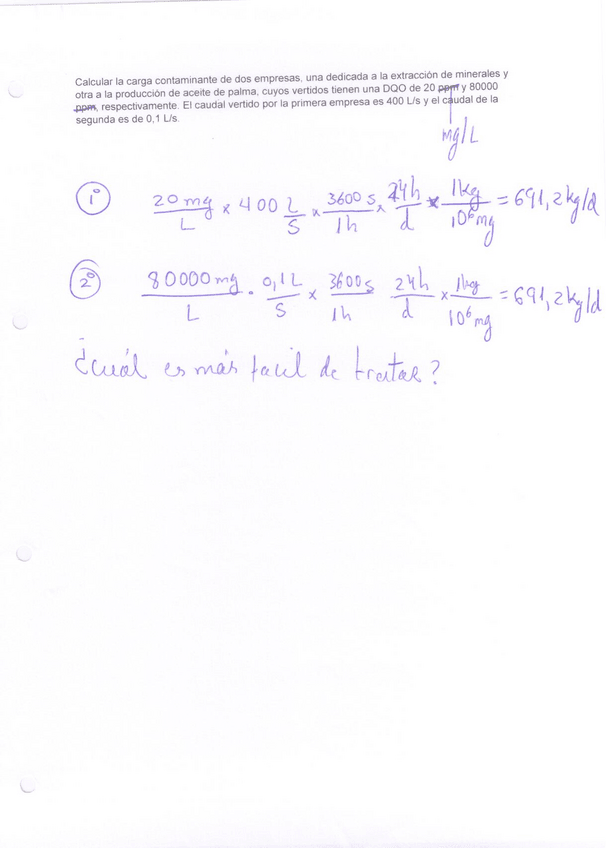 Calcular la carga contaminante de dos empresas, una dedicada a la extracción de minerales y
otra a la producción de aceite de palma, cuyos vertidos tienen una DQO de 20 ppm y 80000
ppm, respectivamente. El caudal vertido por la primera empresa es 400 L/s y el caudal de la
segunda es de 0,1 L/s.
mg/L
1º 20 mg/L x 400 L/s x 3600 s/1h x 24h/d x 1kg/10⁶mg = 691,2 kg/d
2º 80000 mg/L . 0,1L/s x 3600s/1h 24h/d x 1kg/10⁶mg = 691,2 kg/d
¿cuál es más facil de tratar?